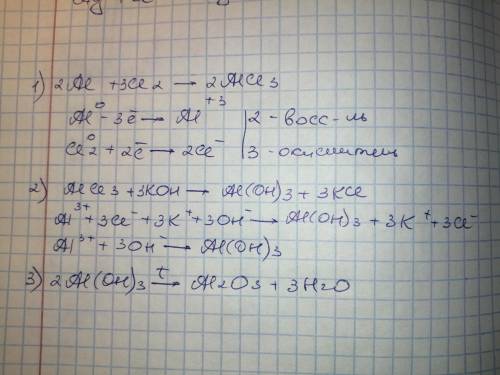 1) 2Al + 3Cl2 → 2AlCl3
Al⁰ - 3ē → Al⁺³ | 2 - восс-ль
Cl2⁰ + 2ē → 2Cl⁻ | 3 - окислитель
2) AlCl3 + 3KOH → Al(OH)3 + 3KCl
Al³⁺ + 3Cl⁻ + 3K⁺ + 3OH⁻ → Al(OH)3 + 3K⁺ + 3Cl⁻
Al³⁺ + 3OH⁻ → Al(OH)3
3) 2Al(OH)3 →t Al2O3 + 3H2O